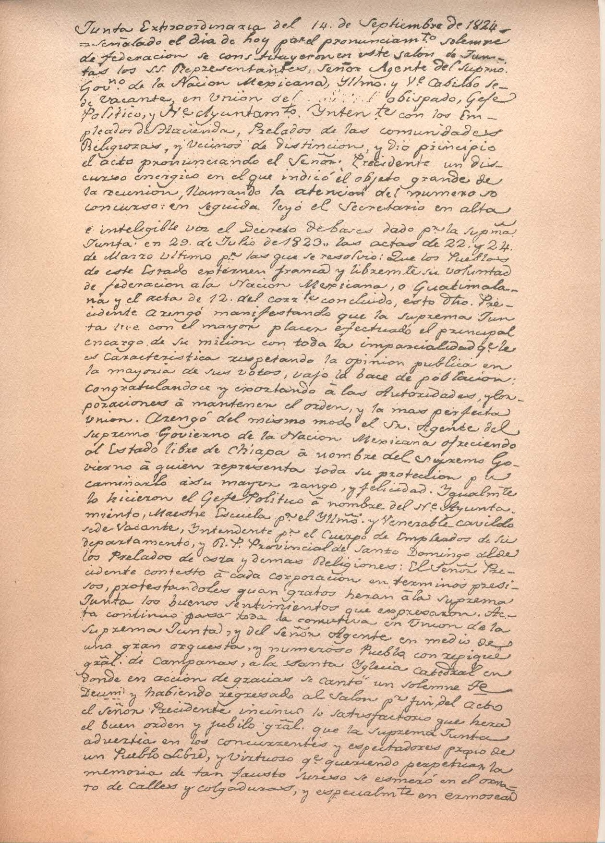 Junta Extraordinaria del 14. de Septiembre de 1824.
señalado el dia de hoy para el pronunciamto. solemne
de federacion se constituyeron en este salon de Jun-
tas los SS. Representantes, señor Agente del Supmo.
Govno. de la Nacion Mexicana, Yllmo. y Ve. Cabildo Se-
de vacante, en Union del obispado, Gefe
Politico, y Ne. Ayuntamto. Yntente. con los Em-
pleados de Hacienda, Prelados de las comunidades
Religiozas, y Vecinos de distincion, y dio principio
el acto pronunciando el Señor Precidente un dis-
curso energico en el que indicó el objeto grande de
la reunion, llamando la atencion del numeroso
concurso: en seguida leyó el Secretario en alta
é inteligible voz el Decreto de bases dado pr. la Supma.
Junta: en 29. de Julio de 1823. las actas de 22. y 24.
de Marzo ultimo pr. las que se resolvió: Que los Pueblos
de este Estado externen franca y libremte. su voluntad
de federacion a la Nacion Mexicana, o Guatimala-
na y el acta de 12. del corrte. concluido, esto Dho. Pre-
cidente arengó manifestando que la suprema Jun
ta con el mayor placer efectuado el principal
encargo de su mision con toda la imparcialidad qe. le
es caracteristica respetando la opinion publica en
la mayoria de sus votos, vajo la bace de poblacion:
congratulandoce y exortando á las Autoridades, y Cor-
poraciones á mantener el orden, y la mas perfecta
union. Arengó del mismo modo el Sr. Agente del
Supremo Govierno de la Nacion Mexicana ofreciendo
al Estado libre de Chiapa á nombre del Supremo Go-
vierno á quien representa toda su proteccion
caminarlo á su mayor rango, y felicidad. Ygualmte.
lo hicieron el Gefe Politico á nombre del Ne. Ayunta-
miento, Maestre Escuela pr. el Yllmo. y Venerable cavildo
sede Vacante, Yntendente pr. el Cuerpo de Empleados de su
departamento, y R. P. Provincial de Santo Domingo al de
los Prelados de esta y demas Religiones: El Señor Pre-
cidente contestó á cada corporacion en terminos preci-
sos, protestandoles quan gratos heran á la Suprema
Junta los buenos sentimientos que expresaron. Ac-
ta continuo pasó toda la comitiva en Union de la
Suprema Junta, y del Señor Agente en medio de
una gran orquesta, y numeroso Pueblo con repique
gral. de Campanas, a la Santa Yglecia Catedral en
donde en accion de gracias se cantó un solemne Te
Deum: y habiendo regresado al Salon pr. fin del acto
el Señor Precidente lo satisfactorio que hera
el buen orden y jubilo gral. que la Suprema Junta
advertia en los concurrentes y espectadores propio de
un Pueblo Libre, y Virtuoso qe. queriendo perpetuar la
memoria de tan fausto suceso se esmeró en el orna-
to de calles y colgaduras, y especialmte. en ermosear